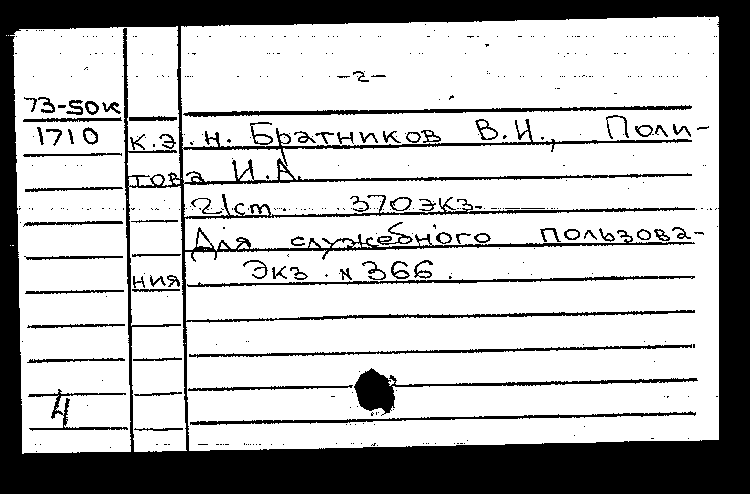 -2-
73-50к
1710 к.э.н. Братников В.И., Поли-
това И.А.
21ст. 370экз.
Для служебного пользова-
ния. Экз. № 366.
4